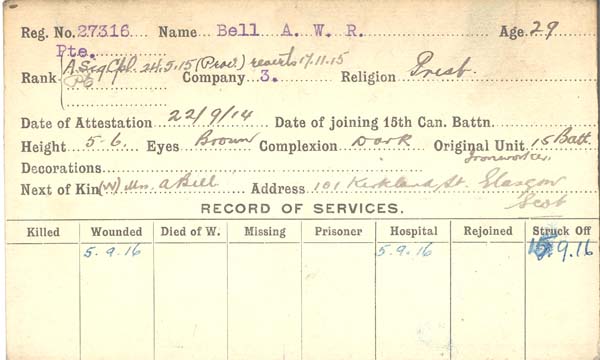 Reg. No. 27316 Name Bell A. W. R. Age 29
Pte.
A. Sgt Cpl. 24.5.15 (Prov) reverts 17.11.15
Rank Pte Company 3. Religion Presb.
Date of Attestation 22/9/14 Date of joining 15th Can. Battn.
Height 5-6. Eyes Brown Complexion Dark Original Unit 15 Batt.
Ironworker.
Decorations
Next of Kin (W) Mrs. A Bell Address 101 Kirkland St. Glasgow
Scot
RECORD OF SERVICES.
Killed Wounded Died of W. Missing Prisoner Hospital Rejoined Struck Off
5.9.16 5.9.16 15.9.16